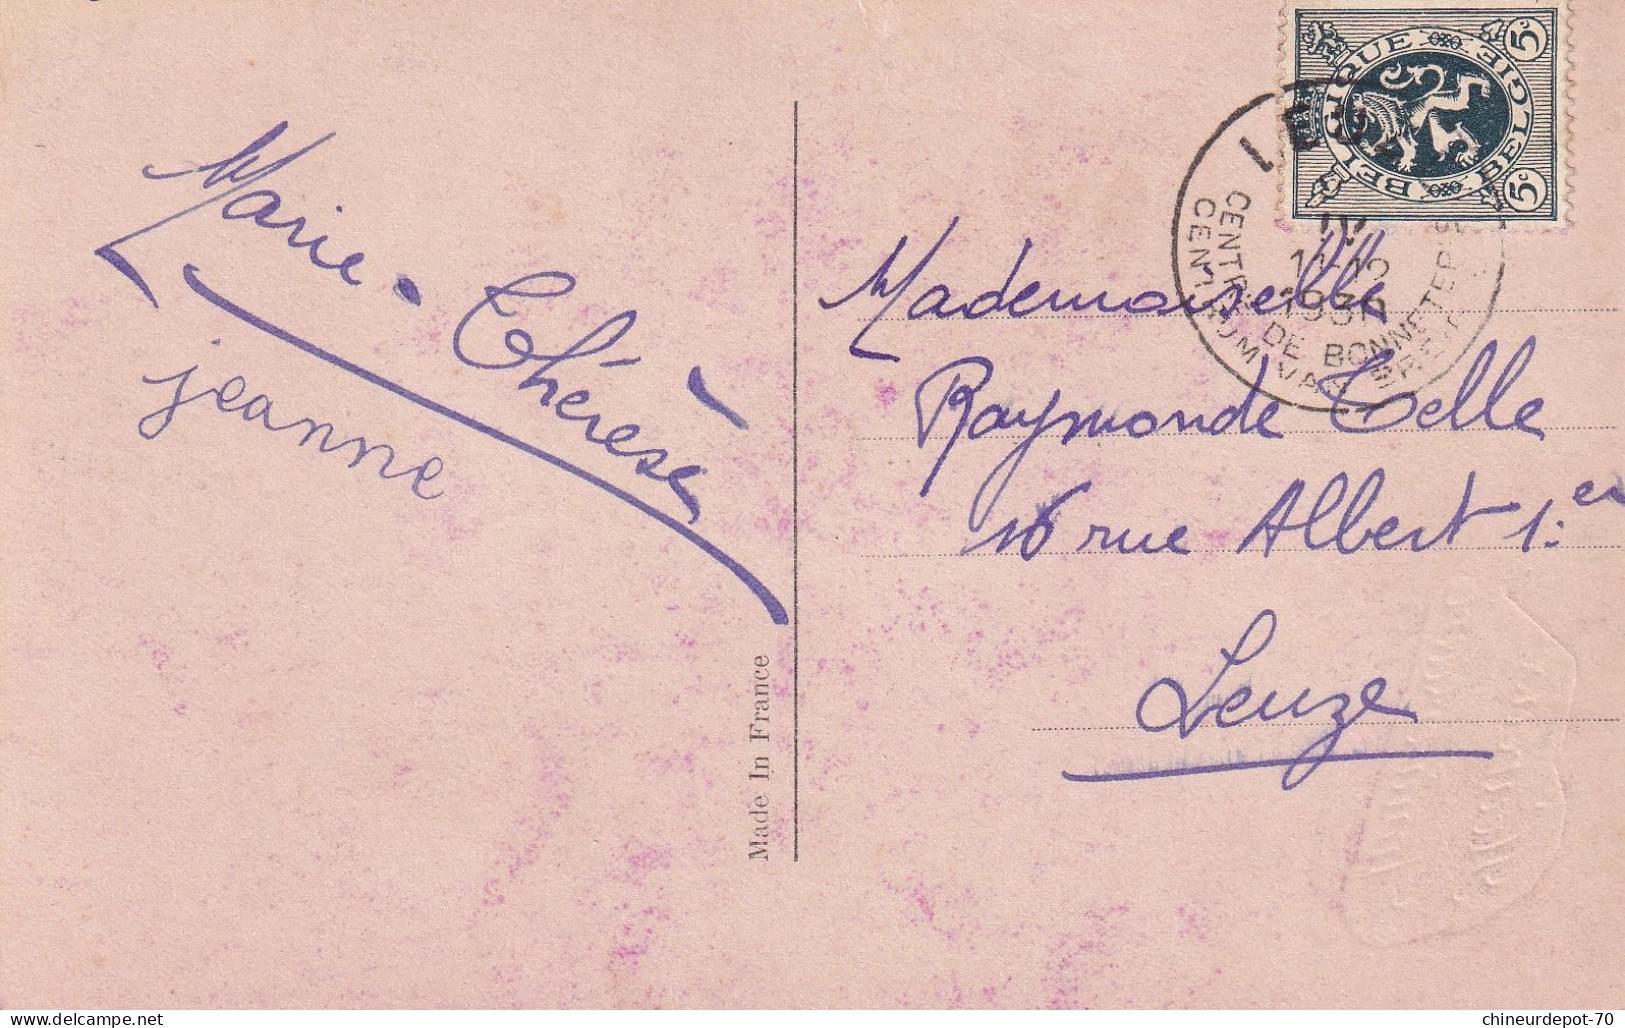 Marie-Thérèse
jeanne
Made In France
BELGIQUE BELGIE
5c 5c
IV
11-12
1930
CENTRE DE BONNETERIE
CENTRUM VAN
Mademoiselle
Raymonde Telle
16 rue Albert 1er
Leuze
chineurdepot-70
delcampe.net